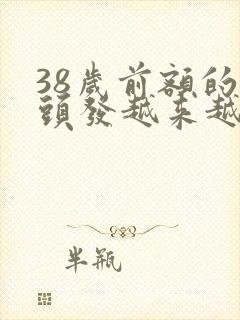 38歲前額的
頭發越來越
半瓶